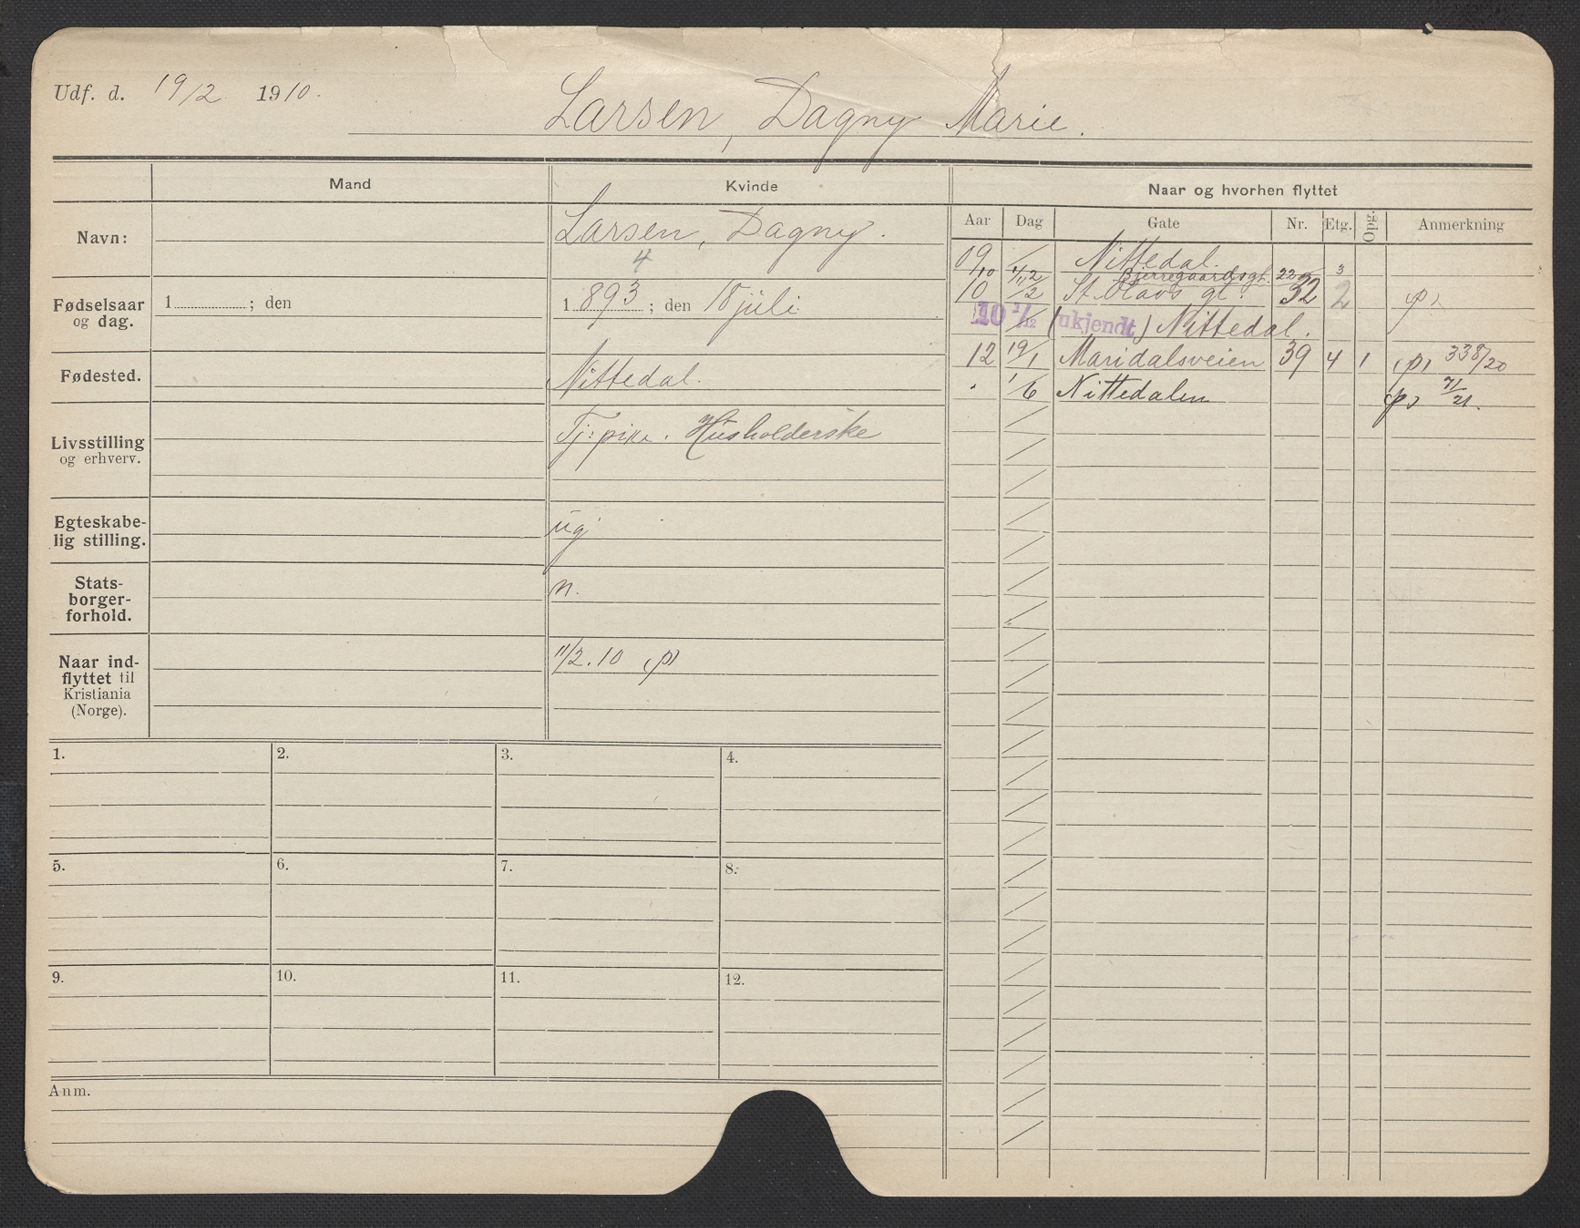 Udf. d. 19/2 1910.
Larsen, Dagny Marie.
Mand
Kvinde
Naar og hvorhen flyttet
Aar Dag Gate Nr. Etg. Opg. Anmerkning
Navn:
Larsen, Dagny.
4
Fødselsaar og dag.
1 ; den
1893 ; den 18 juli
Fødested.
Nittedal.
Livsstilling og erhverv.
Tj: pike. Husholderske
Egteskabe-
lig stilling.
ug
Stats-
borger-
forhold.
n.
Naar ind-
flyttet til
Kristiania
(Norge).
11/2.10 (p)
09 / Nittedal.
/10 4/12 Bjerregaardsgt. 22 3
10 11/2 St. Olavs gt. 32 2 (p)
10 1/12 (ukjendt) Nittedal.
12 19/1 Maridalsveien 39 4 1 (p) 338/20
" 1/6 Nittedalen (p) 71/21.
1. 2. 3. 4.
5. 6. 7. 8.
9. 10. 11. 12.
Anm.